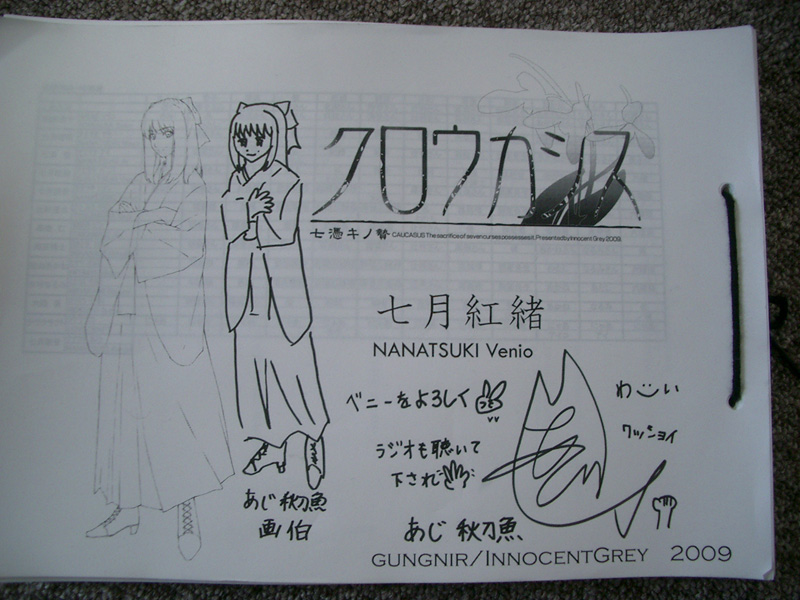 クロウカシス
七憑キノ贄 CAUCASUS The sacrifice of seven curses possesses it. Presented by Innocent Grey 2009.
七月紅緒
NANATSUKI Venio
ベニーをよろしく
わーい
ワッショイ
ラジオも聴いて
下され
あじ秋刀魚
画伯
あじ秋刀魚
GUNGNIR/INNOCENTGREY 2009